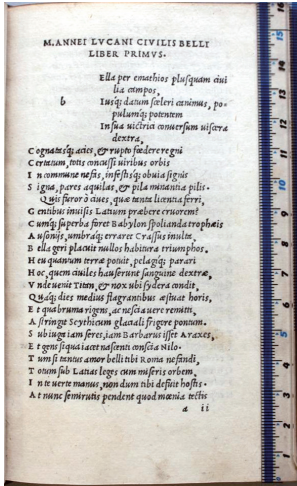 M. ANNEI LVCANI CIVILIS BELLI
LIBER PRIMVS.
Ella per emathios plusquam ciui
lia campos,
b Iusq; datum sceleri canimus, po-
pulumq; potentem
In sua uictrici conuersum uiscera
dextra,
Cognatasq; acies, & rupto foedere regni
Certatum, totis concussi uiribus orbis
In commune nefas, infestisq; obuia signis
Signa, pares aquilas, & pila minantia pilis.
Quis furor ô ciues, quae tanta licentia ferri,
Gentibus inuisis Latium praebere cruorem?
Cumq; superba foret Babylon spolianda trophaeis
Ausonijs, umbraq; erraret Crassus inulta,
Bella geri placuit nullos habitura triumphos.
Heu quantum terrae potuit, pelagiq; parari
Hoc, quem ciuiles hauserunt sanguine dextrae,
Vnde uenit Titan, & nox ubi sydera condit,
Quaq; dies medius flagrantibus aestuat horis,
Et qua bruma rigens, ac nescia uere remitti,
Astringit Scythicum glaciali frigore pontum.
Sub iuga iam seres, iam Barbarus isset Araxes,
Et gens siqua iacet nascenti conscia Nilo.
Tum si tantus amor belli tibi Roma nefandi,
Totum sub Latias leges cum miseris orbem,
In te uerte manus, non dum tibi defuit hostis.
At nunc semirutis pendent quod moenia tectis
a ii